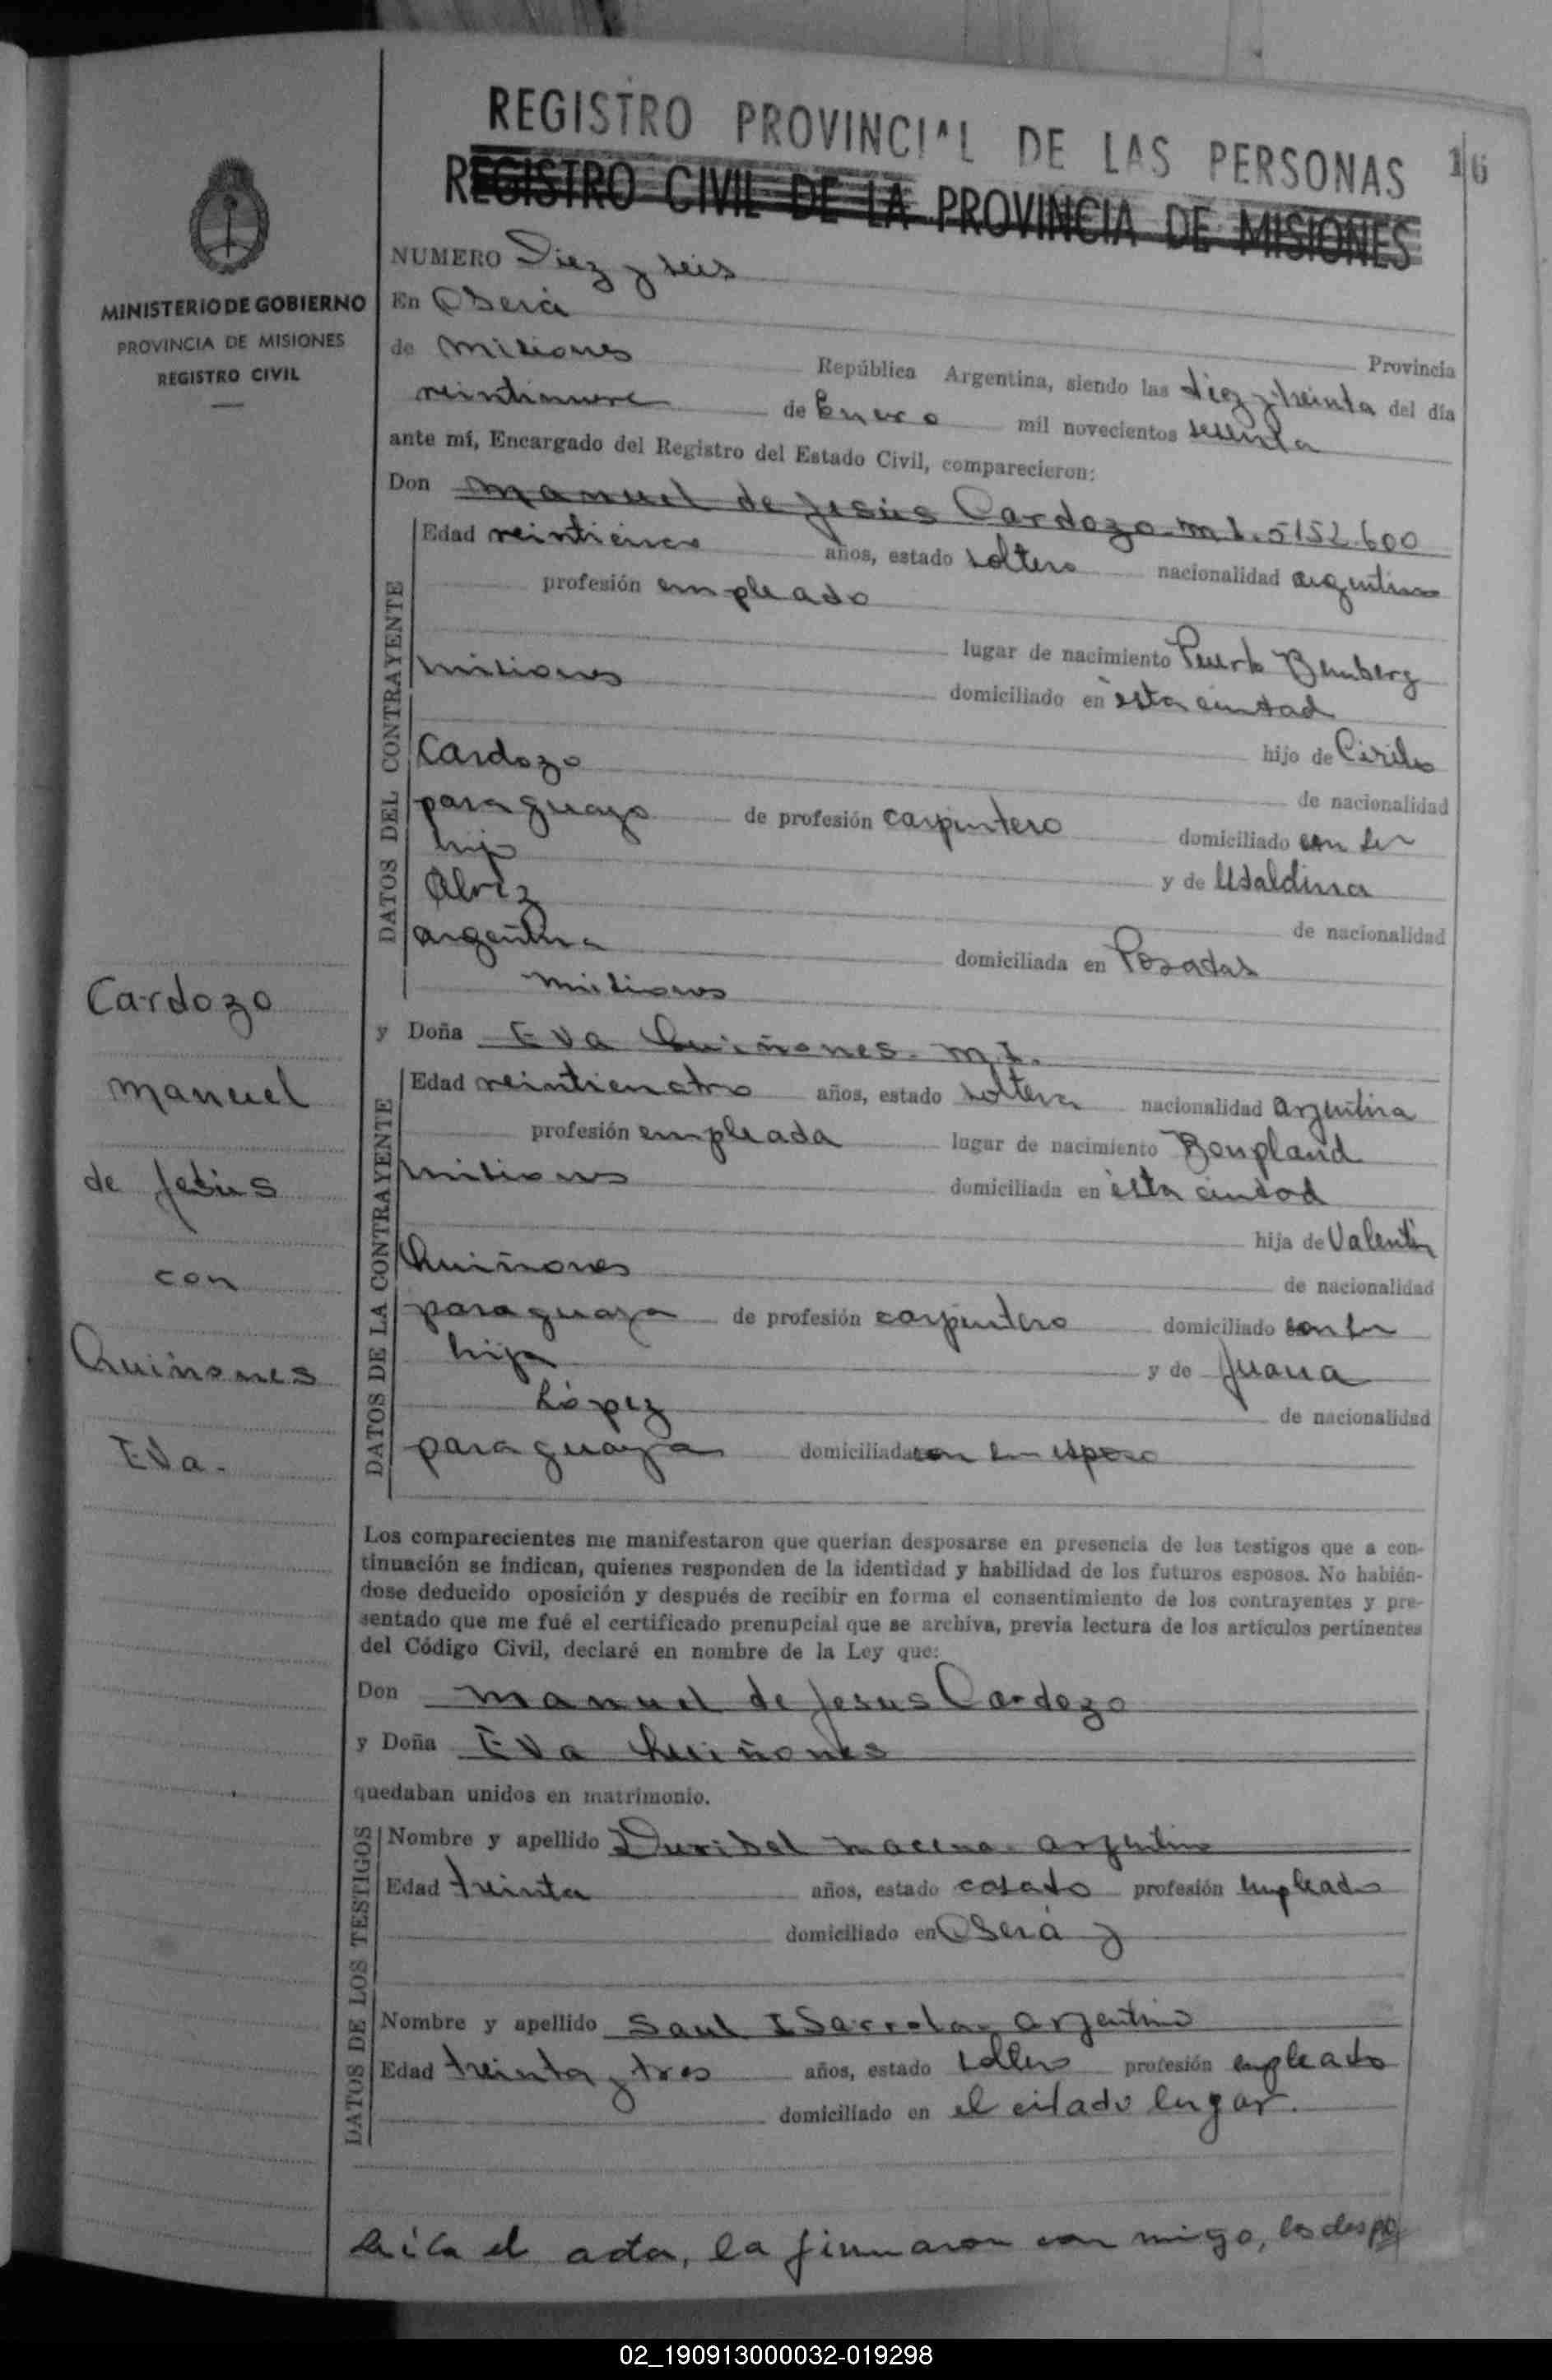 REGISTRO PROVINCIAL DE LAS PERSONAS
16
REGISTRO CIVIL DE LA PROVINCIA DE MISIONES
MINISTERIO DE GOBIERNO
PROVINCIA DE MISIONES
REGISTRO CIVIL
Cardozo
Manuel
de Jesús
con
Quiñones
Eva.
NUMERO Diez y seis
En Oberá Provincia
de Misiones República Argentina, siendo las diez y treinta del día
veintinueve de Enero mil novecientos sesenta
ante mí, Encargado del Registro del Estado Civil, comparecieron:
Don Manuel de Jesús Cardozo. M.I. 5152.600
DATOS DEL CONTRAYENTE
Edad veinticinco años, estado soltero nacionalidad argentino
profesión empleado
lugar de nacimiento Puerto Bemberg
Misiones domiciliado en ésta ciudad
hijo de Cirilo
Cardozo de nacionalidad
paraguayo de profesión carpintero domiciliado con su
hijo y de Ubaldina
Alvez de nacionalidad
argentina domiciliada en Posadas
Misiones
y Doña Eva Quiñones. M.I.
DATOS DE LA CONTRAYENTE
Edad veinticuatro años, estado soltera nacionalidad argentina
profesión empleada lugar de nacimiento Bonpland
Misiones domiciliada en ésta ciudad
hija de Valentín
Quiñones de nacionalidad
paraguaya de profesión carpintero domiciliado con su
hija y de Juana
López de nacionalidad
paraguaya domiciliada con su esposo
Los comparecientes me manifestaron que querían desposarse en presencia de los testigos que a con-
tinuación se indican, quienes responden de la identidad y habilidad de los futuros esposos. No habién-
dose deducido oposición y después de recibir en forma el consentimiento de los contrayentes y pre-
sentado que me fué el certificado prenupcial que se archiva, previa lectura de los artículos pertinentes
del Código Civil, declaré en nombre de la Ley que:
Don Manuel de Jesus Cardozo
y Doña Eva Quiñones
quedaban unidos en matrimonio.
DATOS DE LOS TESTIGOS
Nombre y apellido argentino
Edad treinta años, estado casado profesión empleado
domiciliado en Oberá y
Nombre y apellido Saul argentino
Edad treinta y tres años, estado soltero profesión empleado
domiciliado en el citado lugar.
Leída el acta, la firmaron con migo, los despo
02_190913000032-019298